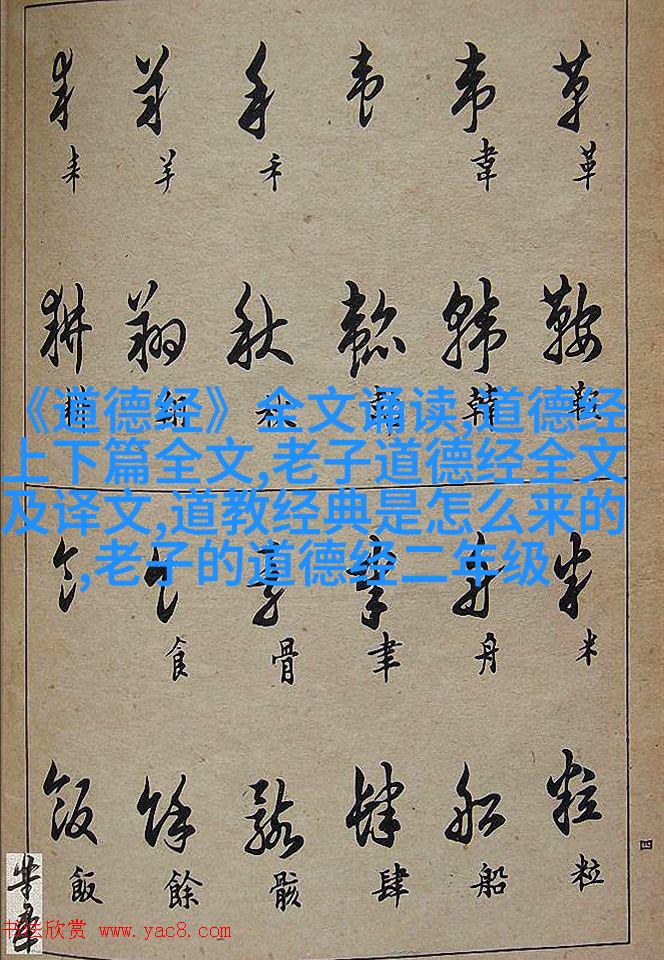 革 韋 禾 羊 耒
鞍 韓 秋 翔 耕
《道德经》全文诵读,道德经
上下篇全文,老子道德经全文
及译文,道教经典是怎么来的
,老子的道德经二年级
米 舟 聿 骨 食
粒 船 肆 骸 餘 飯
四
书法欣赏 www.yac8.com